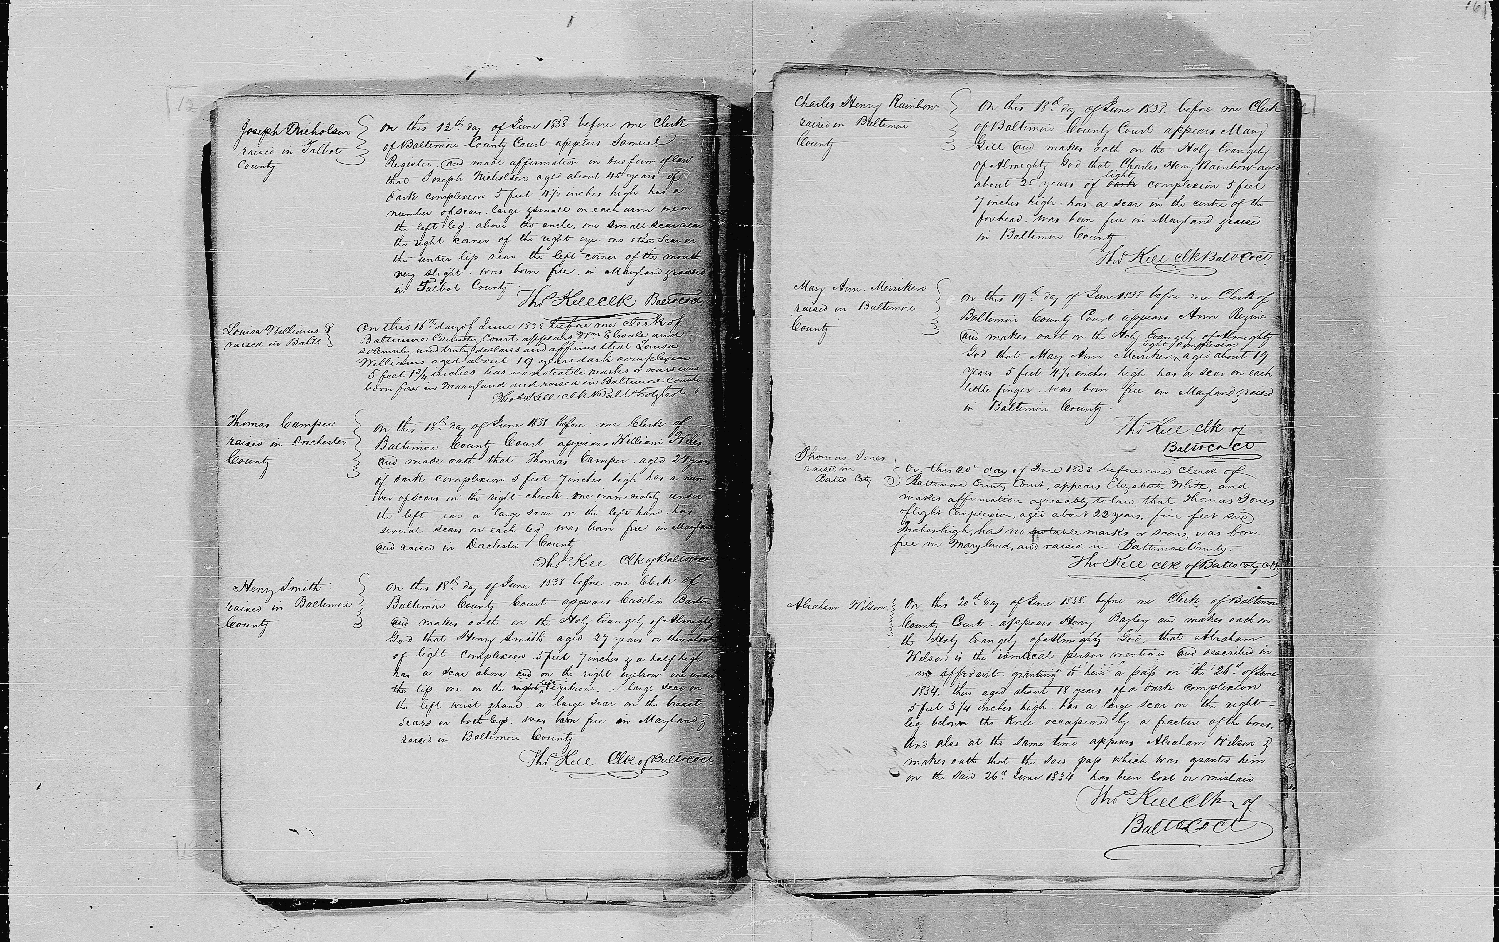 Joseph Nicholson
raised in Talbot
County
On this 12th day of June 1838 before me Clerk
of Baltimore County Court appears Samuel
Register and made affirmation in due form of law
that Joseph Nicholson aged about 45 years of
dark complexion 5 feet 4½ inches high has a
number of scars large & small on each arm one on
the left leg above the ancle, one small scar near
the right corner of the right eye one other scar on
the under lip near the left corner of the mouth
very slight was born free in Maryland & raised
in Talbot County
Thos Kell Clk Balto co ct
Louisa Williams
raised in Balto
On this 18th day of June 1838 before me Clerk of
Baltimore County Court appears Wm and
solemnly and truly declares and affirms that Louisa
Williams aged about 19 years dark complexion
5 feet 1¾ inches has no notable marks or scars was
born free in Maryland and raised in Baltimore County
Thos Kell clk
Thomas Camper
raised in Dorchester
County
On this 18th day of June 1838 before me Clerk of
Baltimore County Court appears William
and made oath that Thomas Camper aged years
of dark complexion 5 feet 7 inches high has a num
ber of scars in the right cheek one immediately under
the left a large scar on the left hand has
several scars on each leg was born free in Maryland
and raised in Dorchester County
Thos Kell Clk of Balto co ct
Henry Smith
raised in Baltimore
County
On this 18th day of June 1838 before me Clerk of
Baltimore County Court appears
and makes oath on the Holy Evangely of Almighty
God that Henry Smith aged 27 years or thereabout
of light complexion 5 feet 7 inches & a half high
has a scar above and on the right eyebrow one under
the lip one on the eyebrow a large scar on
the left wrist & hand a large scar on the breast
scars on both legs was born free in Maryland &
raised in Baltimore County
Thos Kell Clk of Balto co ct
Charles Henry Rainbow
raised in Baltimore
County
On this 18th day of June 1838 before me Clerk
of Baltimore County Court appears Mary
Gill and makes oath on the Holy Evangely
of Almighty God that Charles Heny Rainbow aged
about 25 years of light complexion 5 feet
7 inches high has a scar in the centre of the
forehead was born free in Maryland & raised
in Baltimore County
Thos Kell clk Balto Co ct
Mary Ann Merriken
raised in Baltimore
County
On this 19th day of June 1838 before me Clerk of
Baltimore County Court appears Ann
and makes oath on the Holy Evangely of Almighty
God that Mary Ann Merriken, aged about 19
years 5 feet 4½ inches high has a scar on each
little finger was born free in Maryland & raised
in Baltimore County
Thos Kell clk of
Balto co ct
Thomas Jones
raised in
Balto City
On this 20th day of June 1838 before me Clerk of
Baltimore County Court, appears Elizabeth White, and
makes affirmation agreeably to law that Thomas Jones
of light Complexion, aged about 22 years, five feet six
Inches high, has no marks or scars, was born
free in Maryland, and raised in Baltimore County
Thos Kell clk of Balto County Court
Abraham Wilson
On this 20th day of June 1838 before me Clerk of Baltimore
County Court appears Henry Bayley and makes oath on
the Holy Evangely of Almighty God that Abraham
Wilson is the identical person mentioned and described in
an affidavit granting to him a pass on the 26th of June
1834 then aged about 18 years of a dark complexion
5 feet 3¾ inches high has a large scar on the right
leg below the knee occasioned by a fracture of the bone,
And also at the same time appears Abraham Wilson &
makes oath that the said pass which was granted him
on the said 26th June 1834 has been lost or mislaid
Thos Kell Clk of
Balto Co Ct